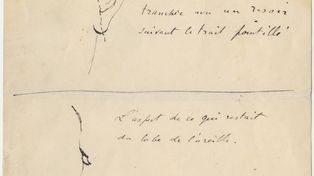 tranchée avec un rasoir
suivant le trait pointillé
L'aspect de ce qui restait
du lobe de l'oreille.